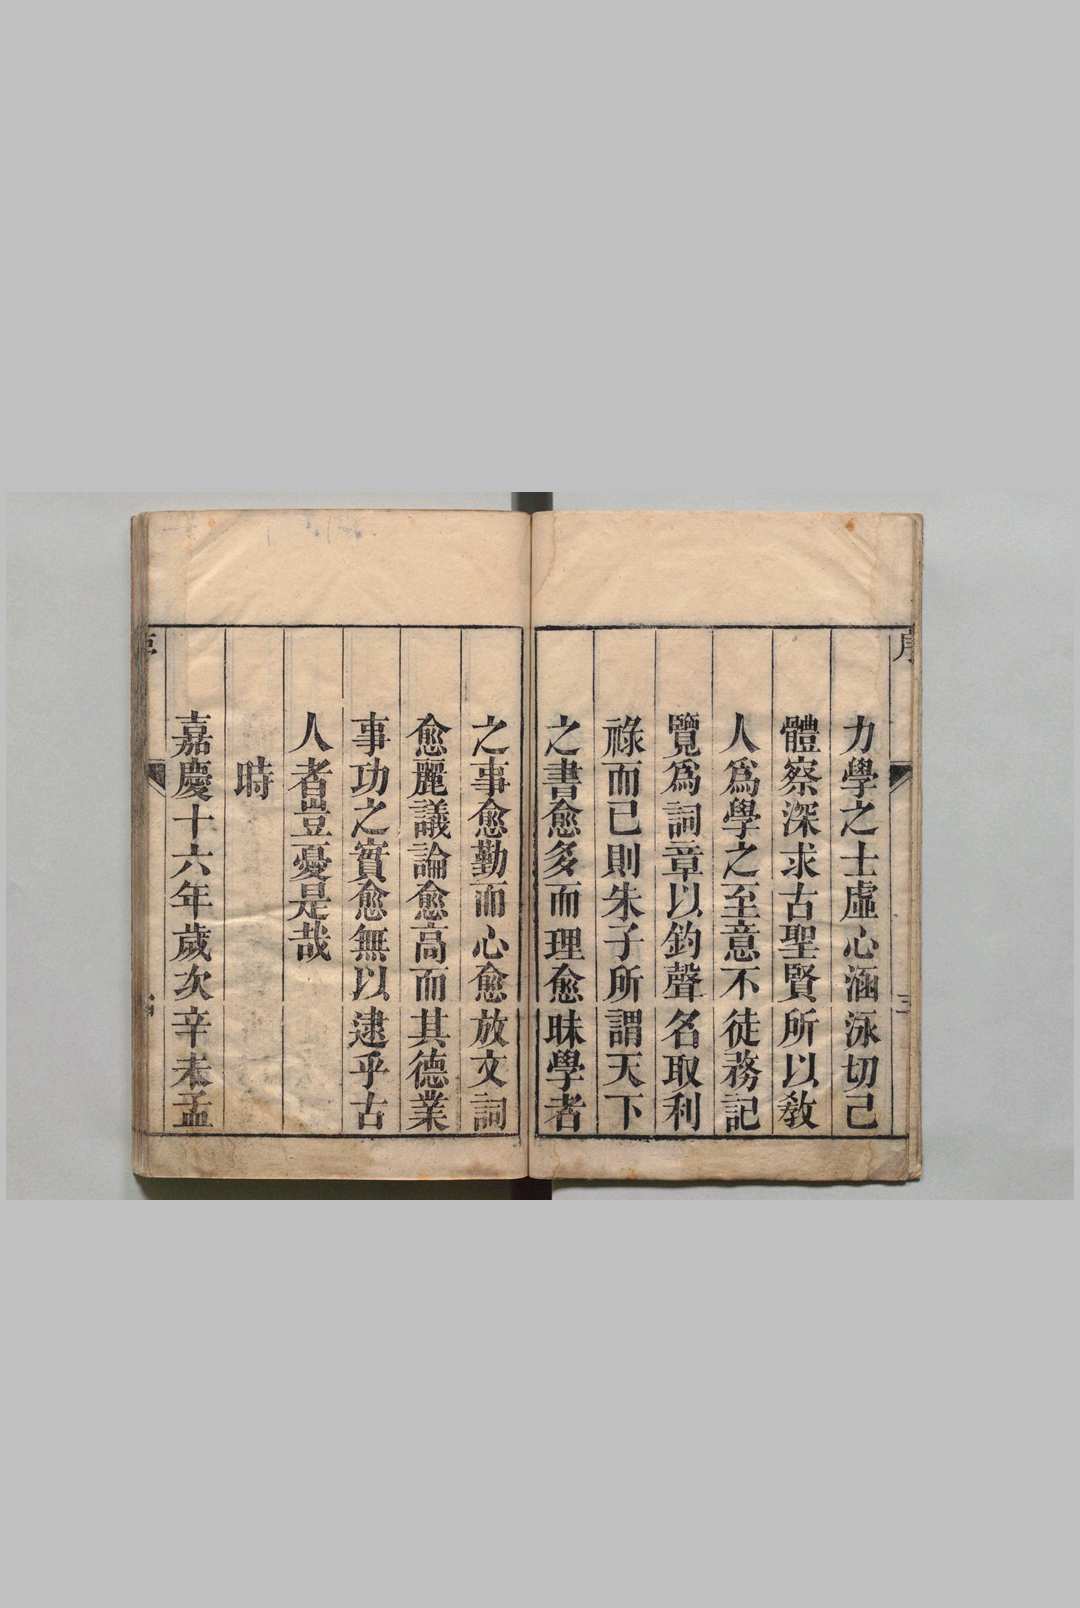 序
力學之士虛心涵泳切己
體察深求古聖賢所以敎
人爲學之至意不徒務記
覽爲詞章以釣聲名取利
祿而已則朱子所謂天下
之書愈多而理愈昧學者
之事愈勤而心愈放文詞
愈麗議論愈高而其德業
事功之實愈無以逮乎古
人者豈憂是哉
時
嘉慶十六年歲次辛未孟